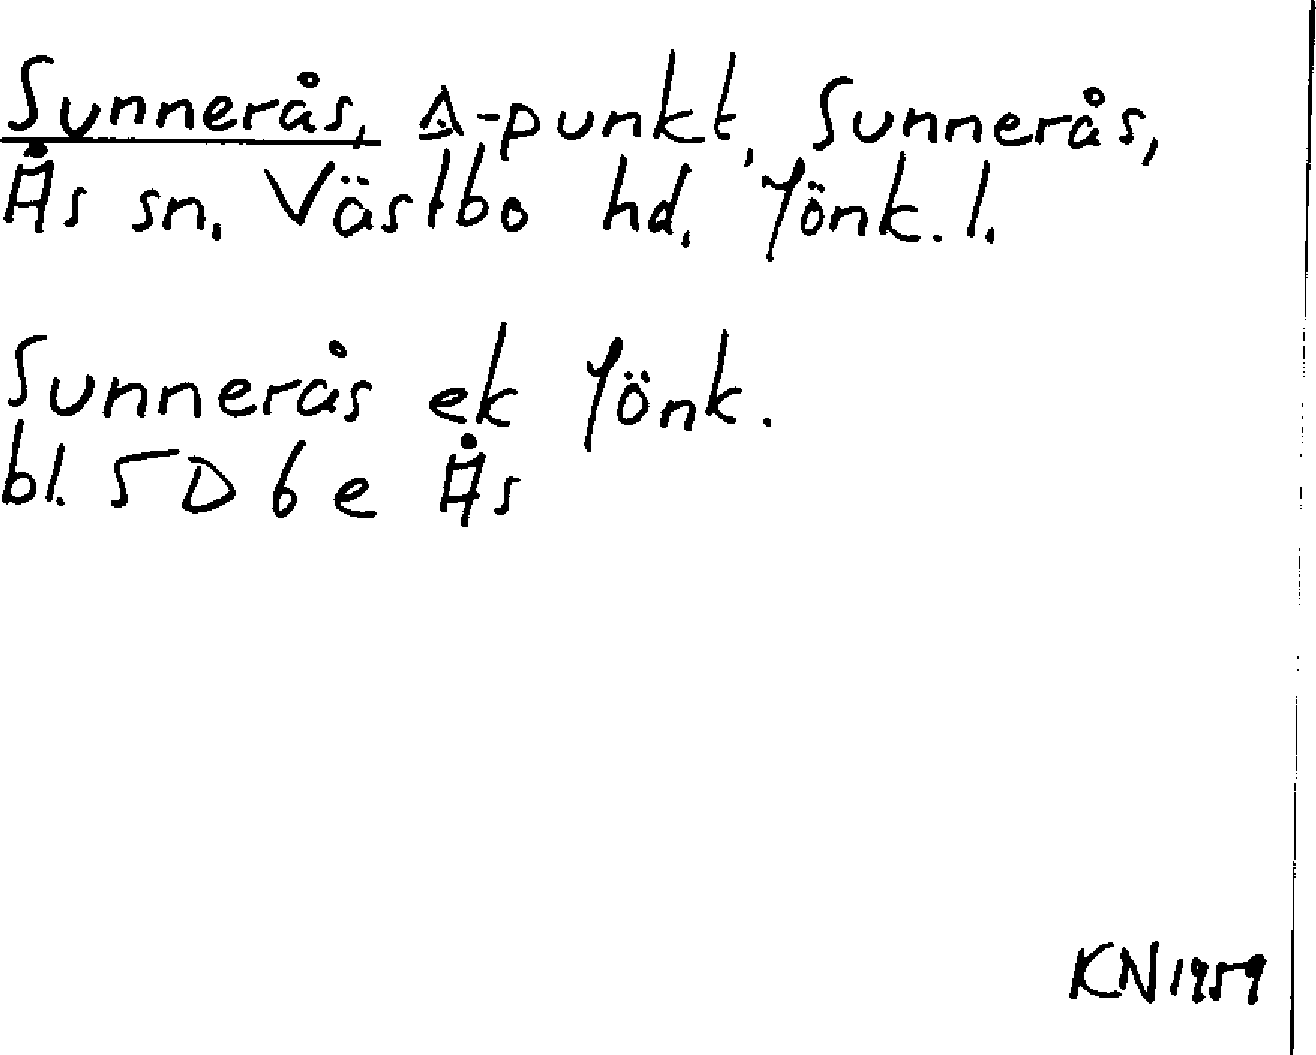 Sunnerås, ∆-punkt, Sunnerås,
Ås sn, Västbo hd, Jönk. l.
Sunnerås ek Jönk.
bl. 5 D 6 e Ås
KN 1959